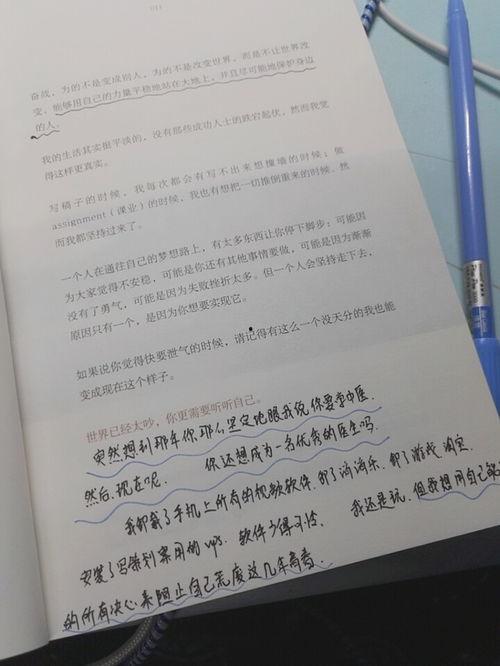 011
奋战，为的不是变成别人，为的不是改变世界，而是不让世界改
变，能够用自己的力量平稳地站在大地上，并且尽可能地保护身边
的人。
我的生活其实挺平淡的，没有那些成功人士的跌宕起伏，然而我觉
得这样更真实。
写稿子的时候，我每次都会有写不出来想撞墙的时候；做
assignment（课业）的时候，我也有想把一切推倒重来的时候。然
而我都坚持过来了。
一个人在通往自己的梦想路上，有太多东西让你停下脚步：可能因
为大家觉得不安稳，可能是你还有其他事情要做，可能是因为渐渐
没有了勇气，可能是因为失败挫折太多。但一个人会坚持走下去，
原因只有一个，是因为你想要实现它。
如果说你觉得快要泄气的时候，请记得有这么一个没天分的我也能
变成现在这个样子。
世界已经太吵，你更需要听听自己。
突然想到那年你那么坚定地跟我说你要学中医.
然后.现在呢.  你还想成为一名优秀的医生吗.
我卸载了手机上所有的视频软件.卸了消消乐.卸了游戏 淘宝.
安装了写策划案用的wps. 软件少得可怜. 我还是说.但我想用自己
的所有决心来阻止自己荒废这几年青春.